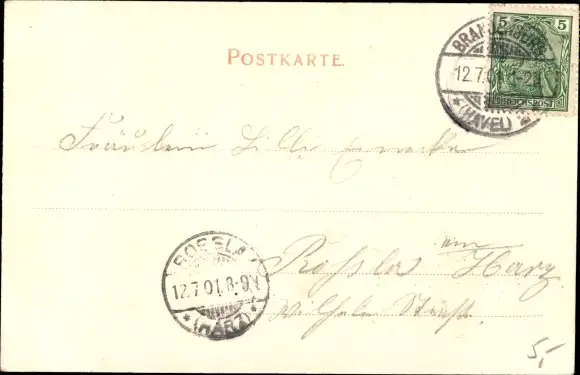 POSTKARTE.
5 5
REICHSPOST
BRANDENBURG
12.7.01
(HAVEL)
Fräulein Lilli
ROSSLA
12.7.01.8-9N
(HARZ)
am
Rossla Harz
Wilhelm Straße
5,-